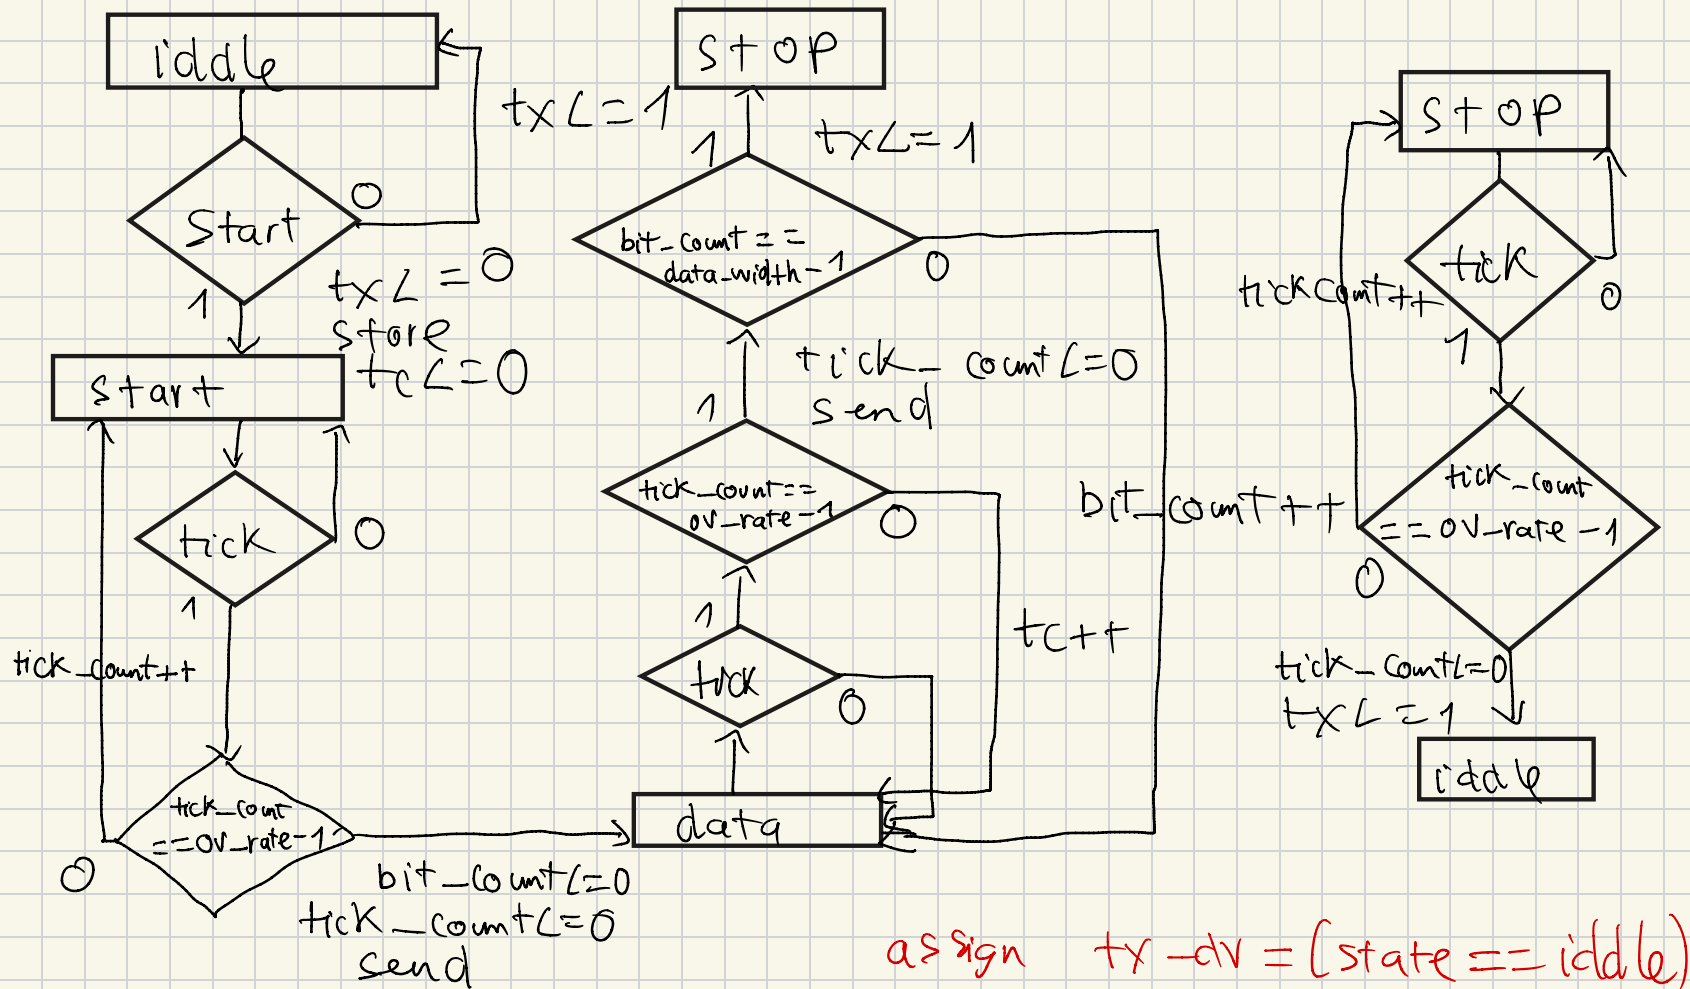 iddle
tx<=1
start
0
1
tx<=0
store
tc<=0
start
tick
0
1
tick_count++
tick_count
==ov_rate-1
0
bit_count<=0
tick_count<=0
send
stop
1
tx<=1
bit_count==
data_width-1
0
tick_count<=0
send
1
tick_count==
ov_rate-1
0
bit_count++
tc++
1
tick
0
data
stop
tick
tickcount++
0
1
tick_count
==ov_rate-1
0
tick_count<=0
tx<=1
iddle
assign tx-dv=(state==iddle)